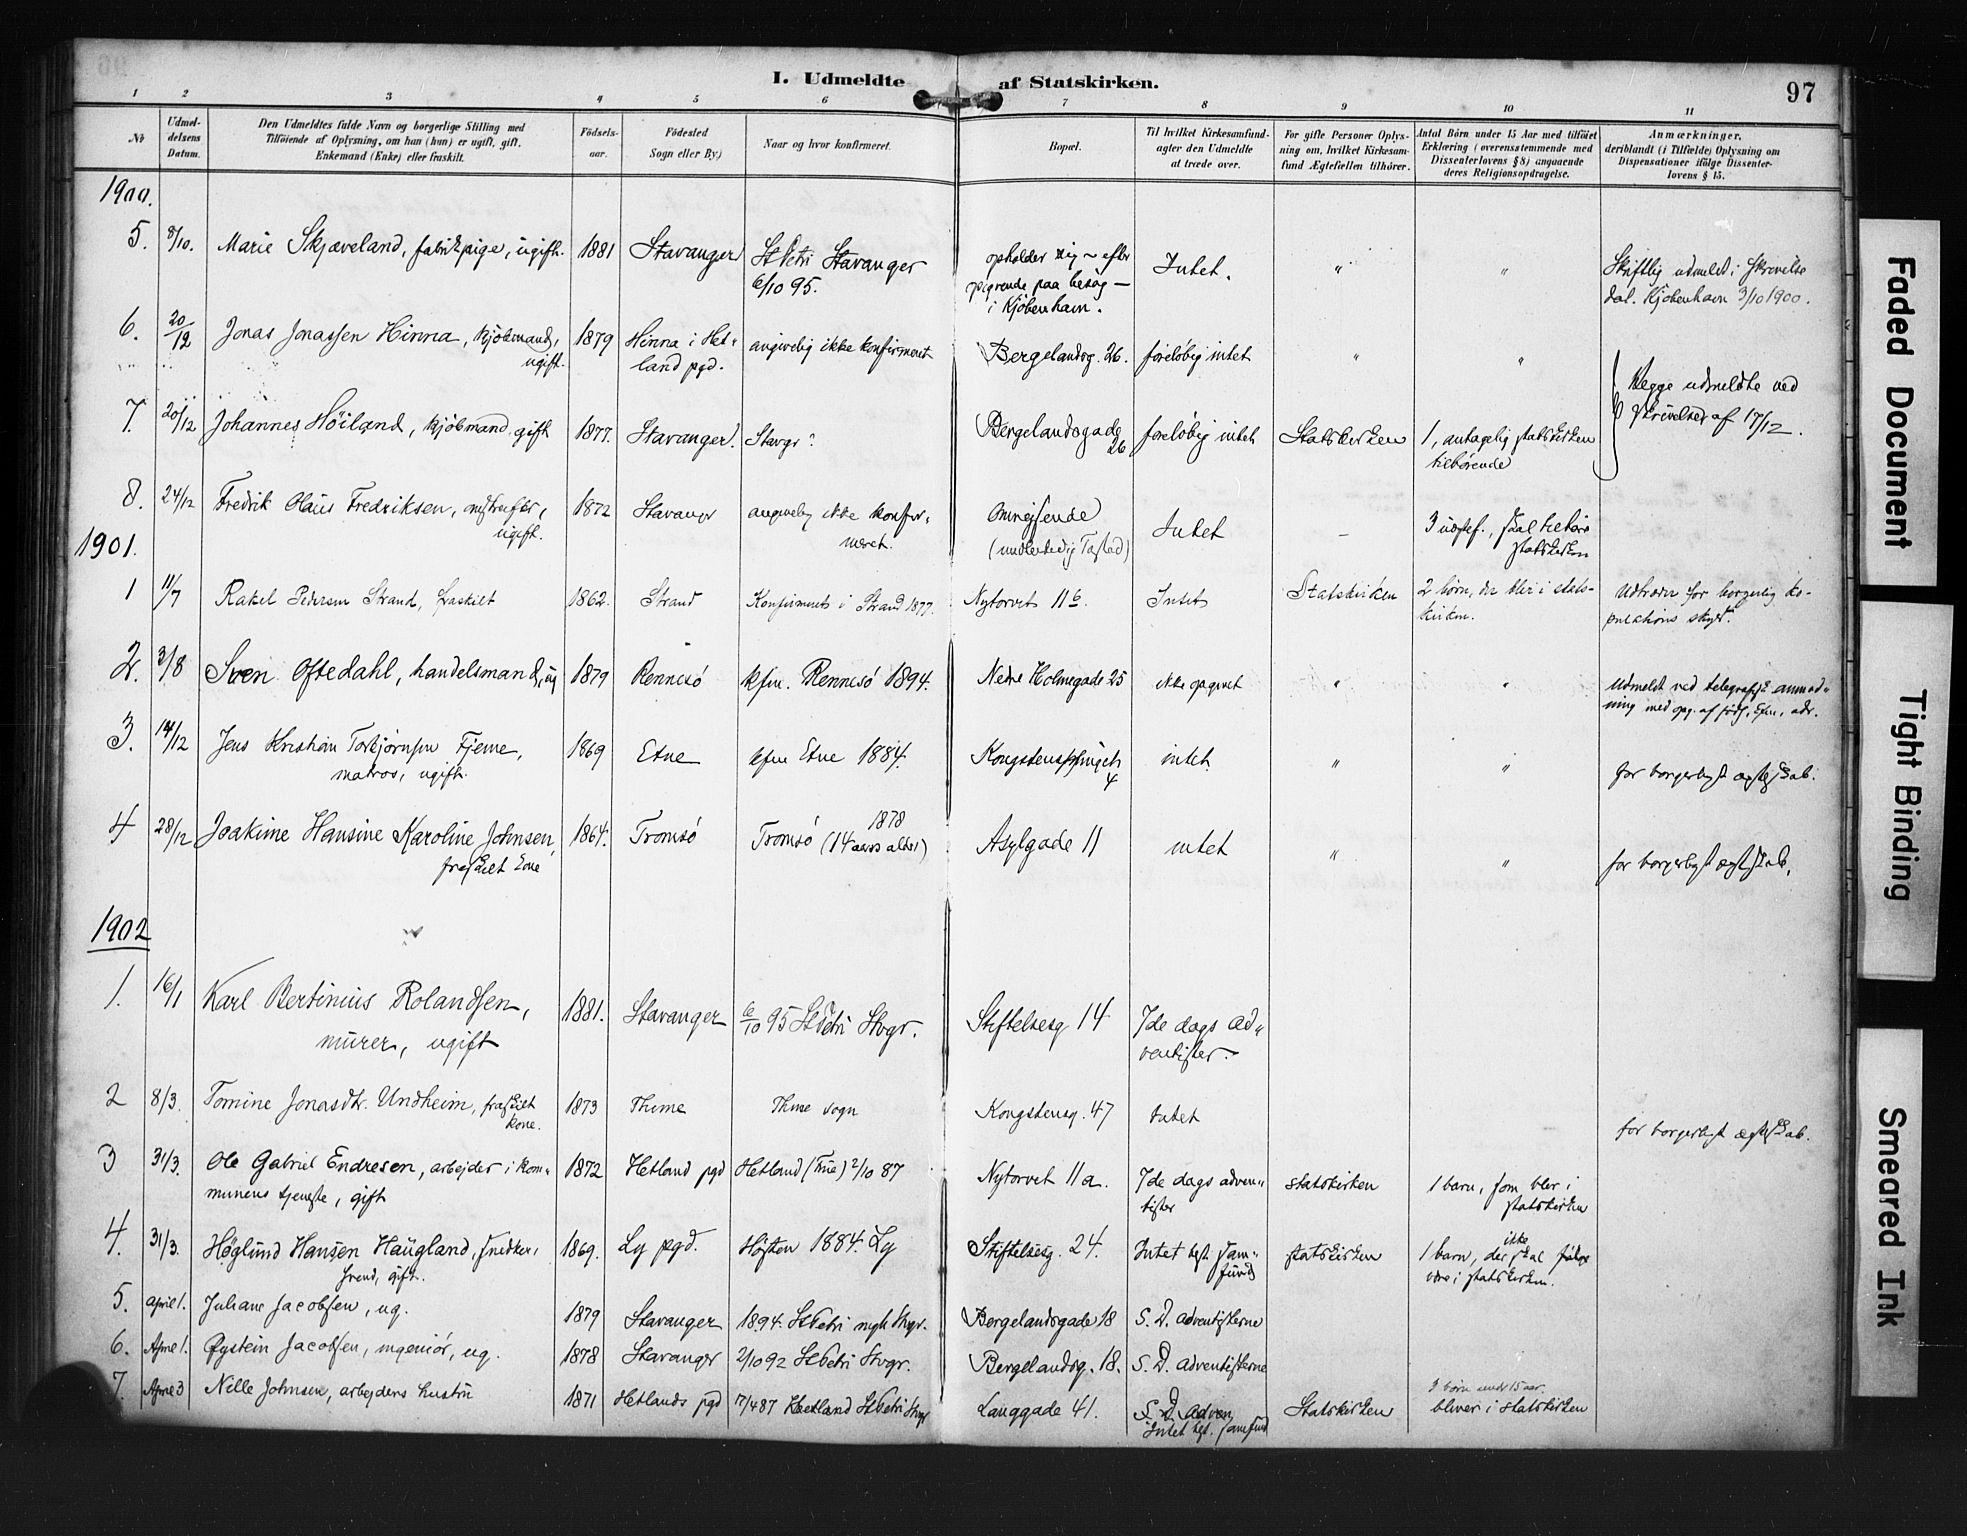 I. Udmeldte af Statskirken.
97
1 2 3 4 5 6 7 8 9 10 11
No
Udmel-
delsens
Datum.
Den Udmeldtes fulde Navn og borgerlige Stilling med
Tilföiende af Oplysning, om han (hun) er ugift, gift,
Enkemand (Enke) eller fraskilt.
Födsels-
aar.
Födested
Sogn eller By.)
Naar og hvor konfirmeret.
Bopæl.
Til hvilket Kirkesamfund-
agter den Udmeldte
at træde over.
For gifte Personer Oplys-
ning om, hvilket Kirkesam-
fund Ægtefællen tilhörer.
Antal Börn under 15 Aar med tilföiet
Erklæring (overensstemmende med
Dissenterlovens § 8) angaaende
deres Religionsopdragelse.
Anmærkninger,
deriblandt (i Tilfælde) Oplysning om
Dispensationer ifölge Dissenter-
lovens § 15.
1900.
5. 8/10. Marie Skjæveland, fabrikpige, ugift. 1881 Stavanger St Petri Stavanger
6/10 95.
opholder sig ~ efter
opgivende paa besøg —
i Kjøbenhavn.
Intet. " "
Skriftlig udmeldt i skrivelse
dat. Kjøbenhavn 3/10 1900.
6. 20/12 Jonas Jonassen Hinna, kjøbmand,
ugift.
1879 Hinna i Het-
land pgd.
angivelig ikke konfirmeret Bergelandsg. 26. foreløbig intet " "
7. 20/12 Johannes Höiland, kjöbmand gift 1877. Stavanger. Stavgr? Bergelandsgade
26
foreløbig intet Statskirken 1, antagelig statskirken
tilhørende
Begge udmeldte ved
skrivelse af 17/12.
8. 24/12 Fredrik Olaus Fredriksen,
ugift.
1872 Stavangr angivelig ikke konfir-
meret.
Omreisende
Intet – 3 uægtef., skal tilhøre
statskirken
1901.
1 11/7 Rakel Pedersen Strand, fraskilt 1862. Strand Konfirmeret i Strand 1877. Nytorvet 11b. Intet Statskirken 2 børn, der blir i stats-
kirken.
Udtræder for borgerlig ko-
pulations skyld.
2. 3/8 Sven Oftedahl, handelsmand, ug 1879 Rennesö kfm. Rennesö 1894. Nedre Holmegade 25 ikke opgivet " "
Udmeldt ved telegrafisk anmod-
ning med opg. af föds., kfm., adr.
3. 14/12 Jens Kristian Torbjørnsen Fjerne,
matros, ugift.
1869 Etne kfm Etne 1884.
4
intet. " " for borgerligt ægteskab.
4 28/12 Joakime Hansine Karoline Johnsen,
fraskilt kone
1864. Tromsö 1878
Tromsö (14 aars alder) Asylgade 11 intet " " for borgerligt ægteskab.
1902
1. 16/1 Karl Bertinius Rolandsen,
murer, ugift
1881. Stavanger 6/10 95 St Petri Stvgr. Stiftelsesg 14 7de dags ad-
ventister.
2 8/3. Tomine Jonasdtr. Undheim, fraskilt
kone.
1873 Thime Thime sogn Kongstensg. 47 Intet for borgerligt ægteskab.
3 31/3. Ole Gabriel Endresen, arbejder i kom-
munens tjeneste, gift
1872 Hetland pgd Hetland (Frue) 2/10 87 Nytorvet 11 a. 7de dags adven-
tister
statskirken 1 barn, som blir i
statskirken
4. 31/3. Høglund Hansen Haugland, snedker,
svend, gift.
1869. Ly pgd. Høsten 1884. Ly Stiftelsesg. 24. Intet bst. sam-
fund
statskirken 1 barn, der ikke skal
være i statskirken.
5. april 1. Juliane Jacobsen, ug. 1879 Stavanger 1894. St Petri mgh Stvgr. Bergelandsgade 18 S. D. adventisterne
6. April 1. Øystein Jacobsen, ingeniör, ug. 1878 Stavanger 2/10 92 St Petri Stvgr. Bergelandsg. 18. S. D. adventisterne
7. April 3 Nille Johnsen, arbejders hustru 1871 Hetlands pgd 17/4 87 Hetland St Petri Stvgr Langgade 41. S. D. Adven
Intet bst. samfund
Statskirken 3 børn under 15 aar.
bliver i statskirken
Faded Document
Tight Binding
Smeared Ink